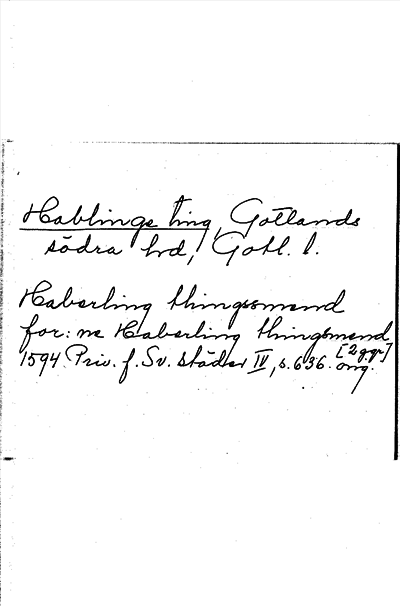 Hablinge ting, Gotlands
södra hd, Gotl. l.
Haberling thingssmend
for: ne Haberling thingsmend [2ggr]
1594 Priv. f. Sv. städer IV, s. 636. orig.